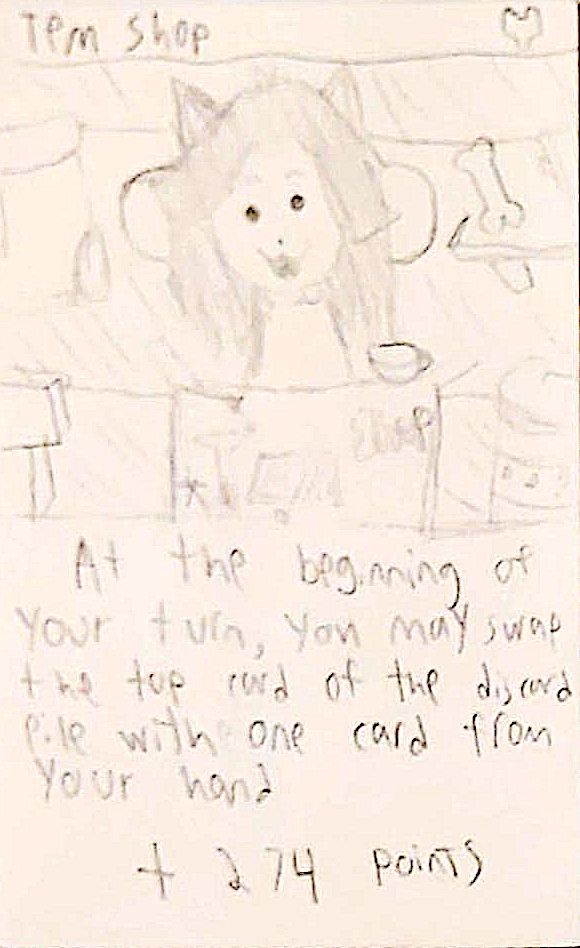 Tem Shop
SHOP
At the beginning of
your turn, you may swap
the top card of the discard
pile with one card from
your hand
+ 274 points